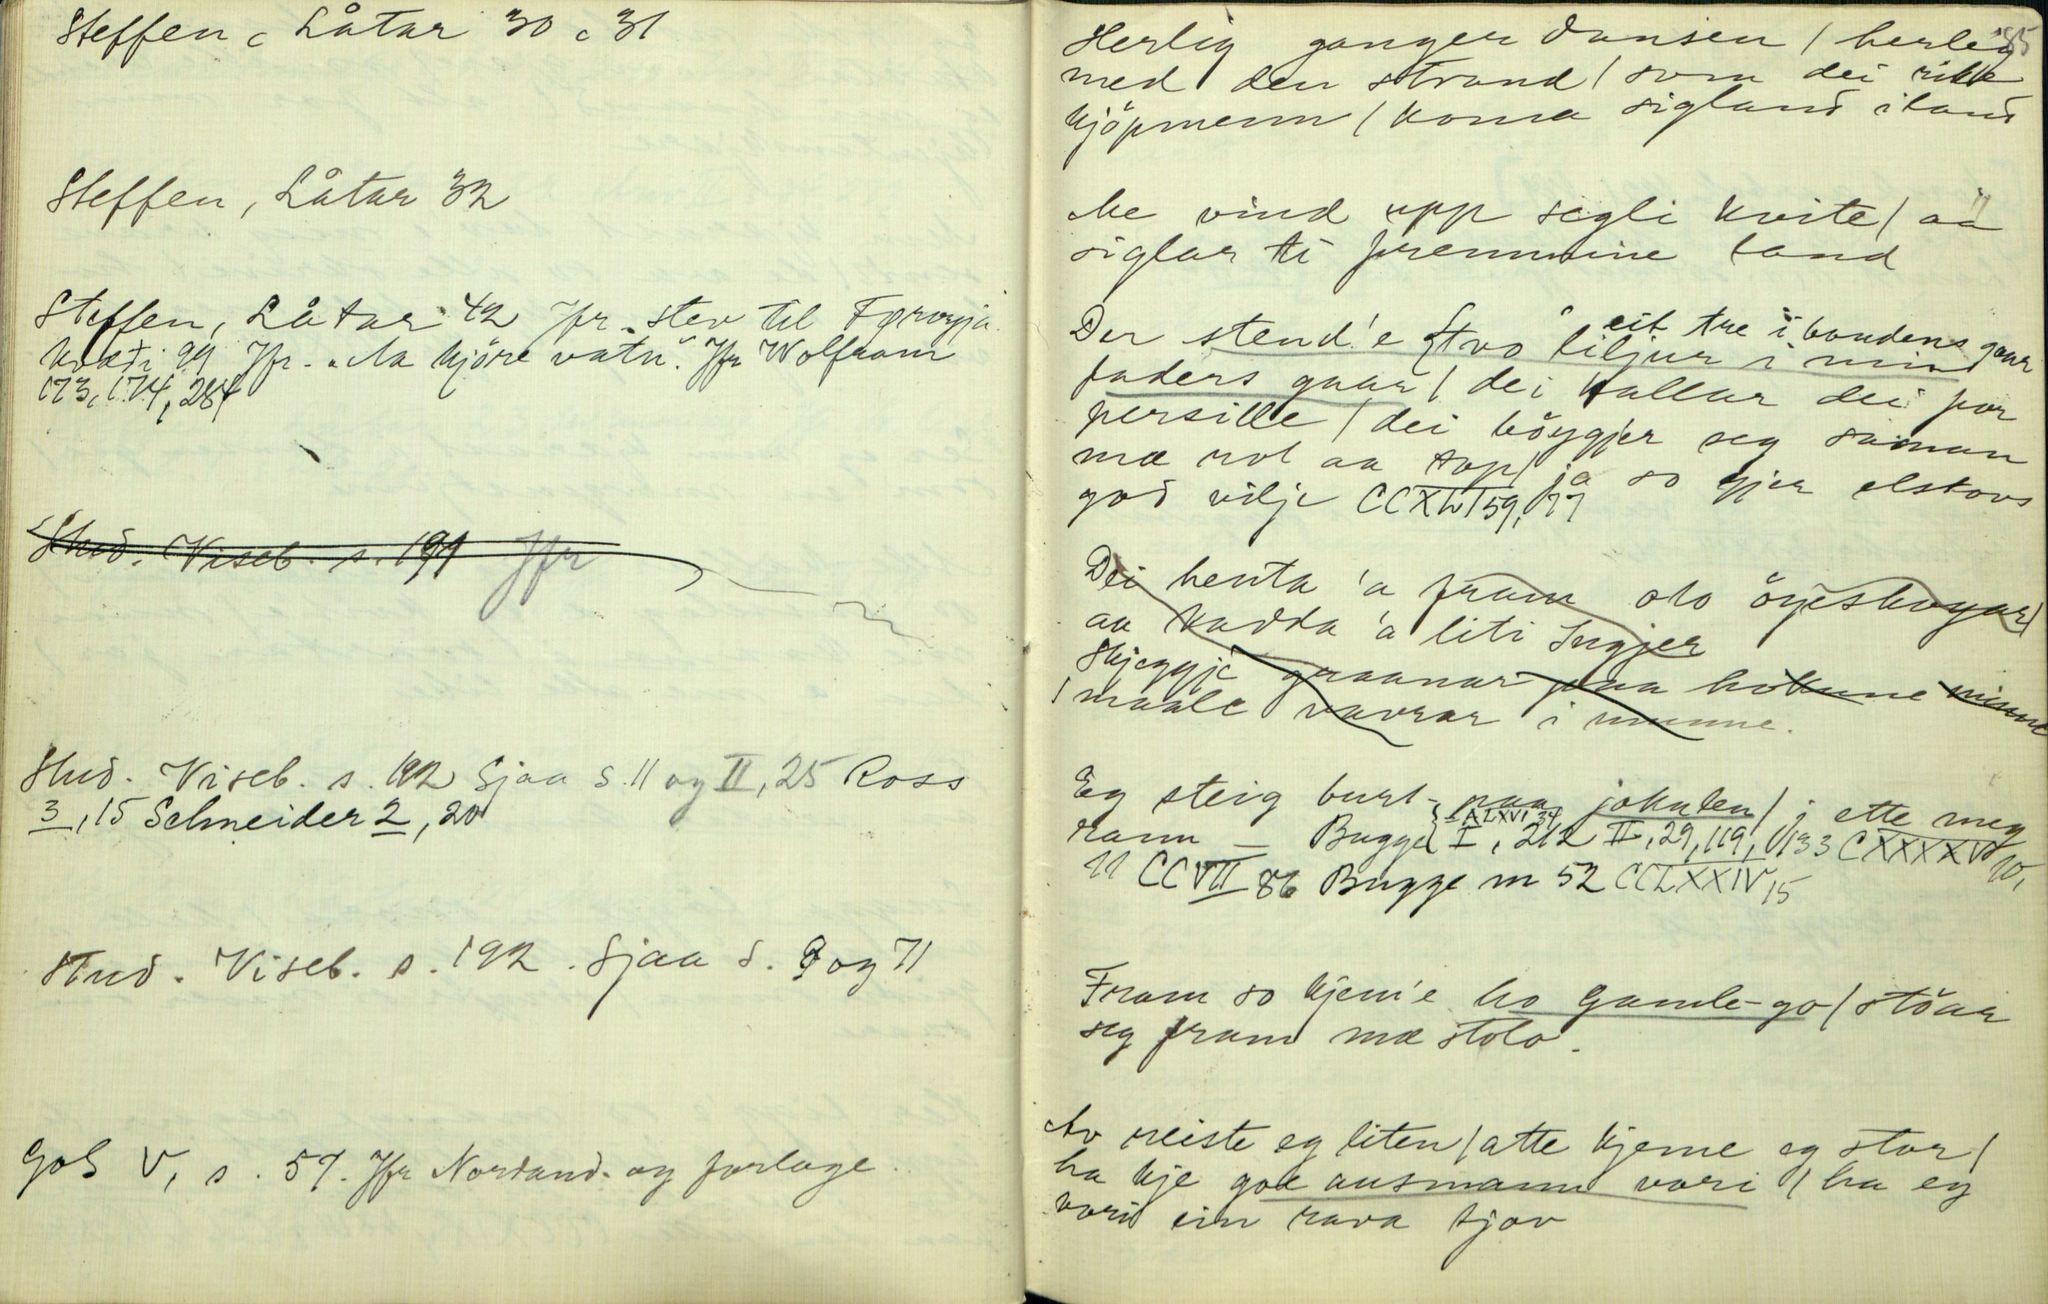 Steffen, Låtar 30, 31
Steffen, Låtar 32
Steffen, Låtar 42 Jfr. stev til Færøyja
kvæði 99 Jfr. "Aa kjöre vatn". Jfr Wolfram
173, 174, 284
Stud. Viseb. s. 191 Jfr
Stud. Viseb. s. 192 Sjaa S. 11 og II, 25 Ross
3, 15 Schneider 2, 20
Stud. Viseb. s. 192. Sjaa S. 9 og 71
Gol V, s. 57. Jfr Nordland. og forlage.
85
Herlig ganger dansen / herleg
med den strand / som dei rike
kjöpmenn / koma sigland i land
Me vind upp segli kvite / aa
siglar ti fremmine land
eit tre i bondens gaar
Der stend'e tvo liljur i min
faders gaar / dei kallar dei for
persille / dei böygjer seg saman
mæ rot aa topp / ja so gjer elskovs
god vilje CCXLI 59, 77
Dei henta 'a fram olo öyeskogar /
aa kadda 'a liti Ingjer
Skjeggje graanar paa hokune minne
/ maale vavrar i munne.
Eg steig burt paa jokulen / j ette meg
rann — Bugge I, 212 II, 29, 119, 133 CXXXXV 10,
= ALXVI 34
11 CCVII 86 Bugge m 52 CCLXXIV, 15
Fram so kjem'e ho Gamle-go / stöar
seg fram mæ stolo.
Av reiste eg liten / atte kjeme eg stor /
ha kje goe ausmann vori / ha eg
vori ein rava tjov